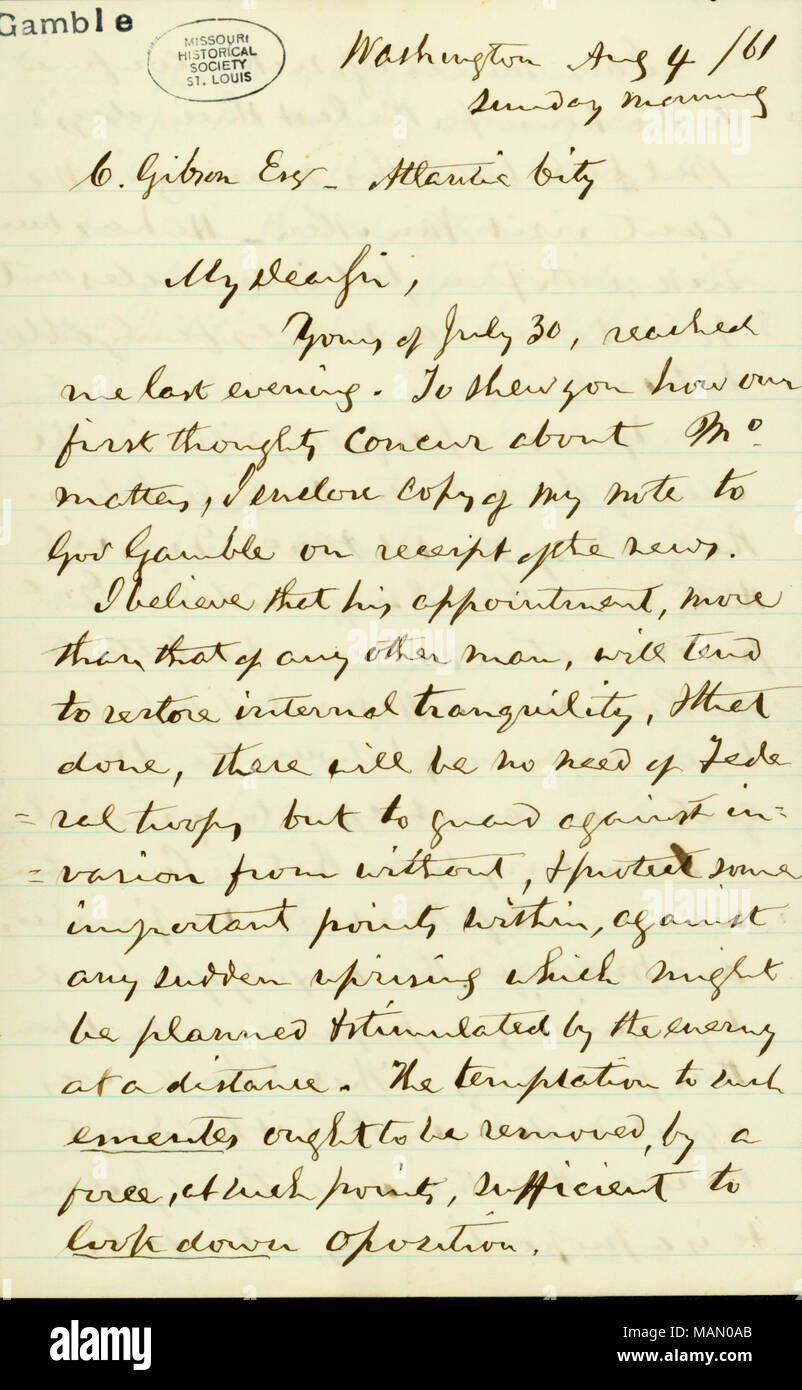 Gamble
MISSOURI
HISTORICAL
SOCIETY
ST. LOUIS
Washington Aug 4 /61
Sunday morning
C. Gibson Esqr - Atlantic City
My dear Sir,
Yours of July 30, reached
me last evening. To shew you how our
first thoughts concur about Mo.
matters, I enclose copy of my note to
Gov Gamble on receipt of the news.
I believe that his appointment, more
than that of any other man, will tend
to restore internal tranquility, & that
done, there will be no need of Fede
=ral troops but to guard against in=
=vasion from without, & protect some
important points within, against
any sudden uprising which might
be planned & stimulated by the enemy
at a distance. The temptation to such
emeutes ought to be removed, by a
force, at such points, sufficient to
look down oposition.
alamy
alamy
a
alamy stock photo
MAN0AB
www.alamy.com